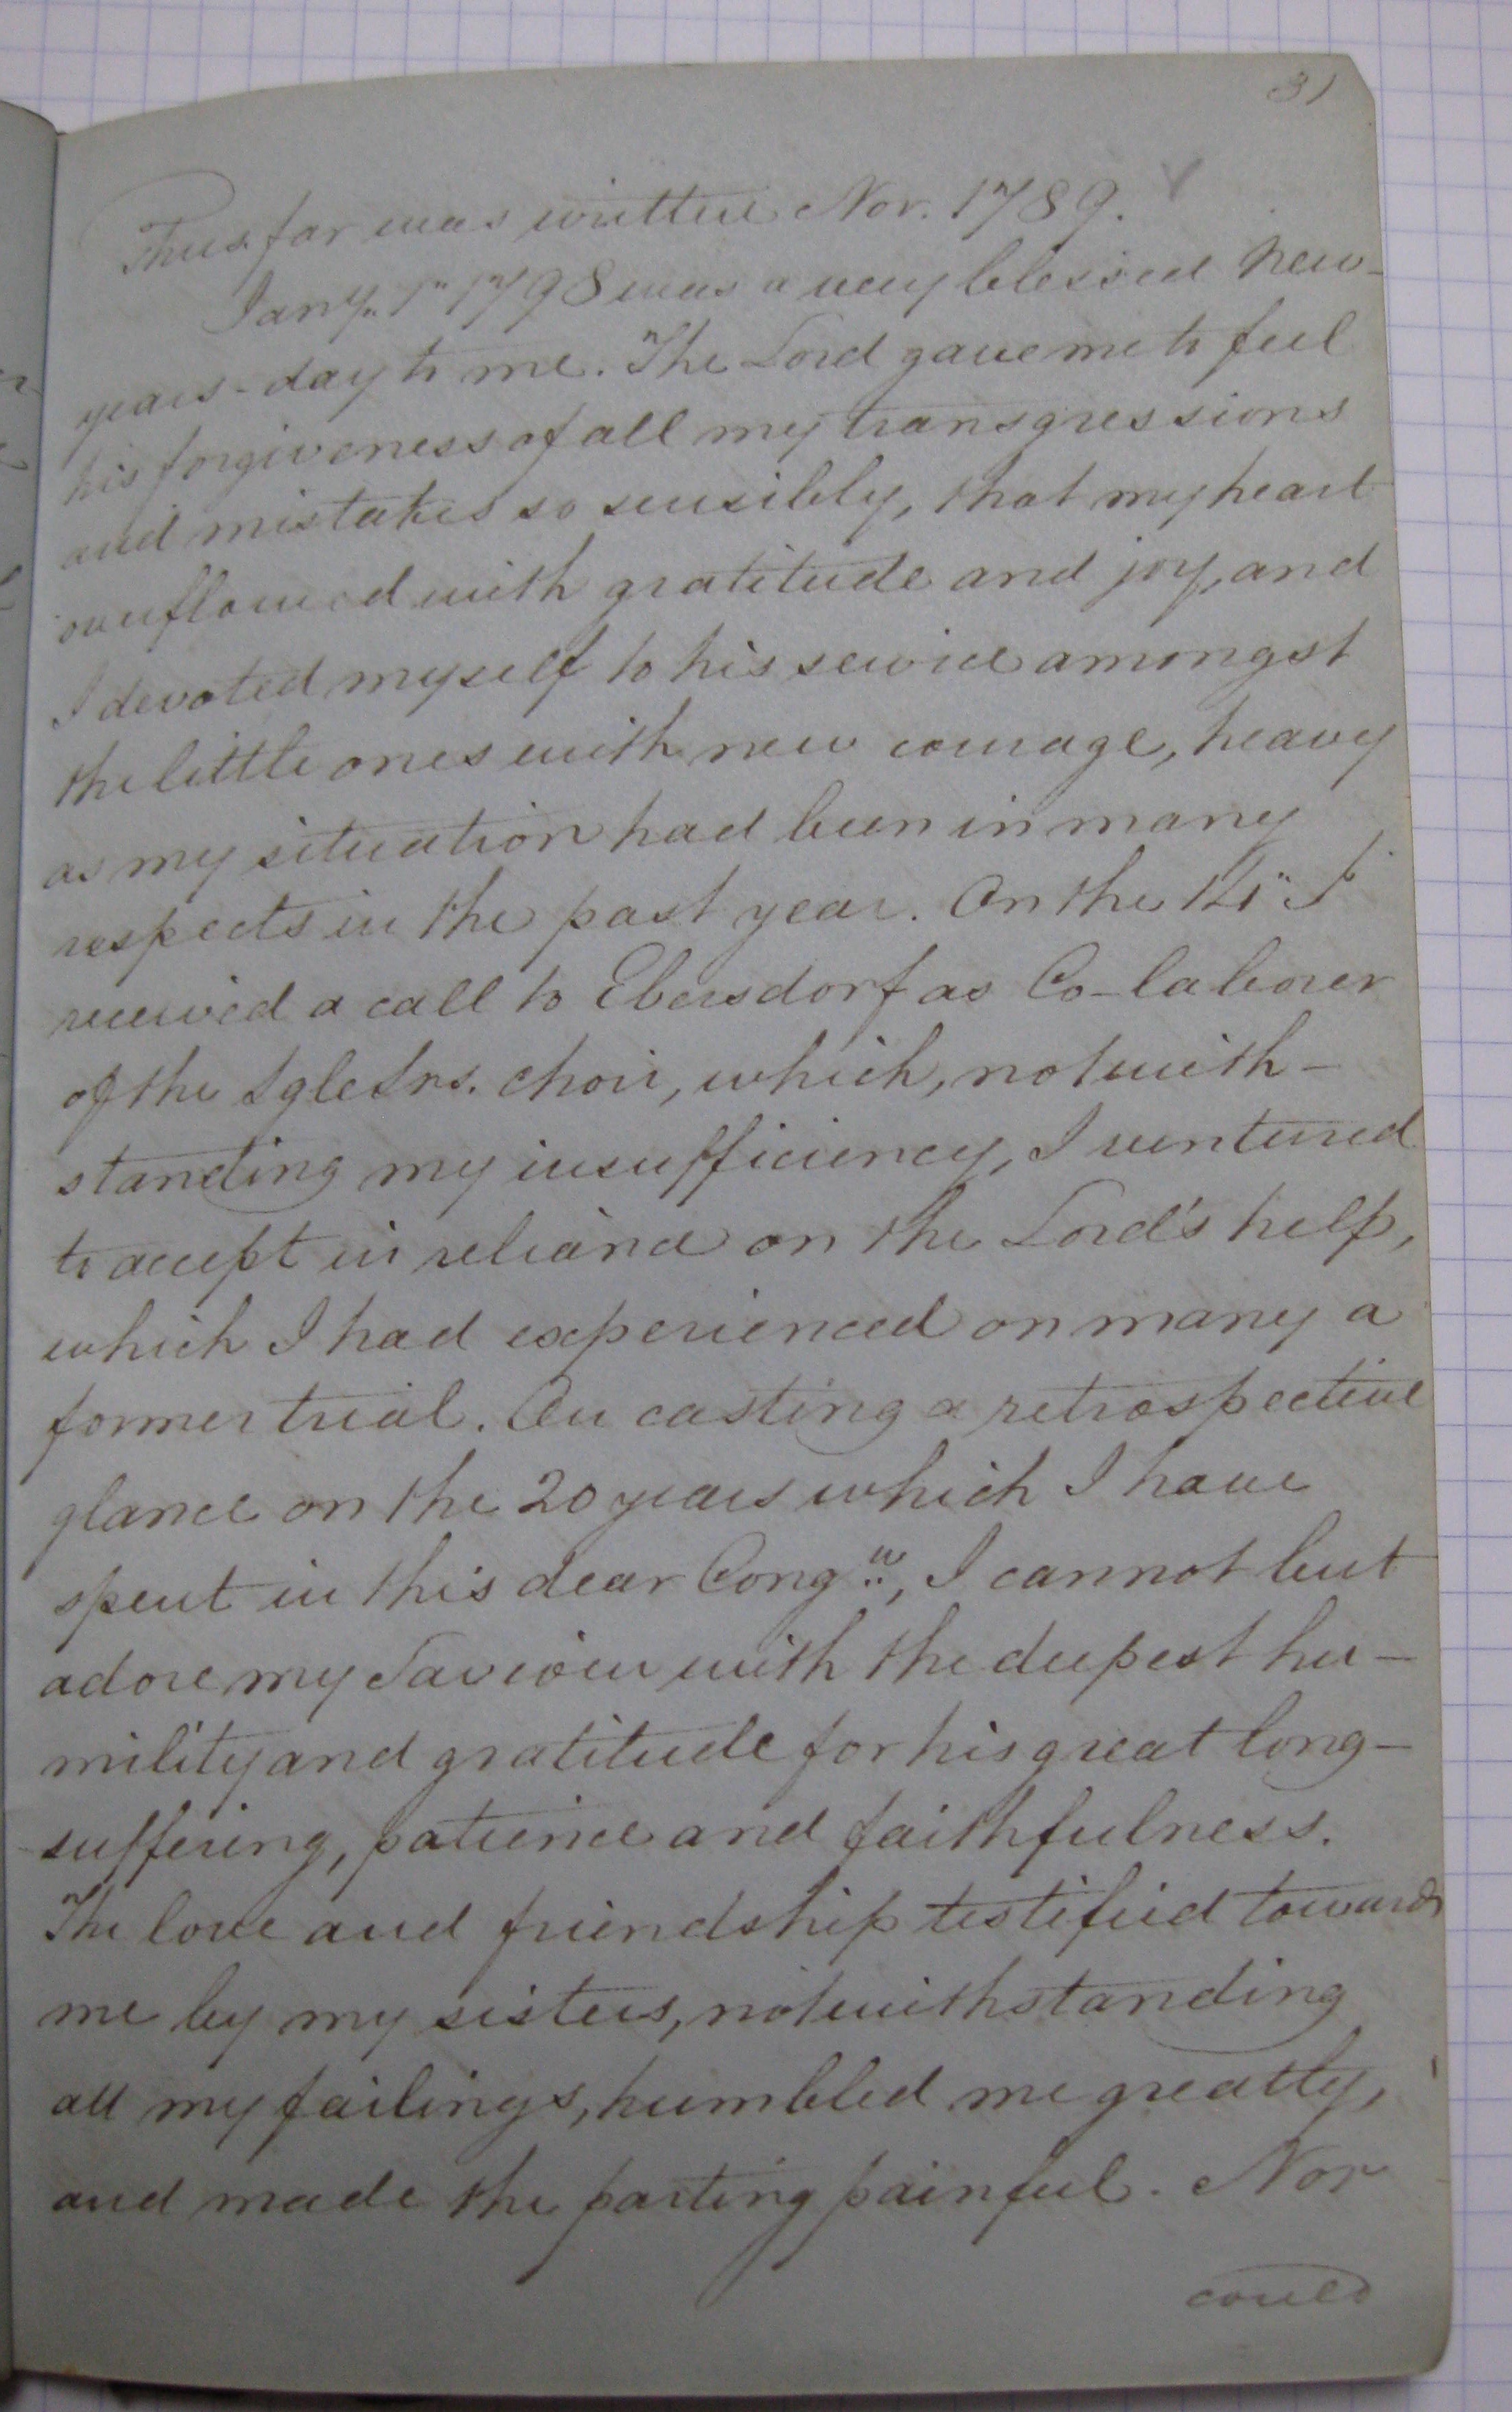 31
Thus far was written Nov. 1789.
Jany. 1" 1798 was a very blessed New-
years-day to me. The Lord gave me to feel
his forgiveness of all my transgressions
and mistakes so sensibly, that my heart
overflowed with gratitude and joy, and
I devoted myself to his service amongst
the little ones with new courage, heavy
as my situation had been in many
respects in the past year. On the 14" I
received a call to Ebersdorf as Co-laborer
of the Sgle Srs. choir, which, notwith-
standing my insufficiency, I ventured
to accept in reliance on the Lord's help,
which I had experienced on many a
former trial. On casting a retrospective
glance on the 20 years which I have
spent in this dear Congn, I cannot but
adore my Saviour with the deepest hu-
mility and gratitude for his great long-
suffering, patience and faithfulness.
The love and friendship testified towards
me by my sisters, notwithstanding
all my failings, humbled me greatly,
and made the parting painful. Nor
could